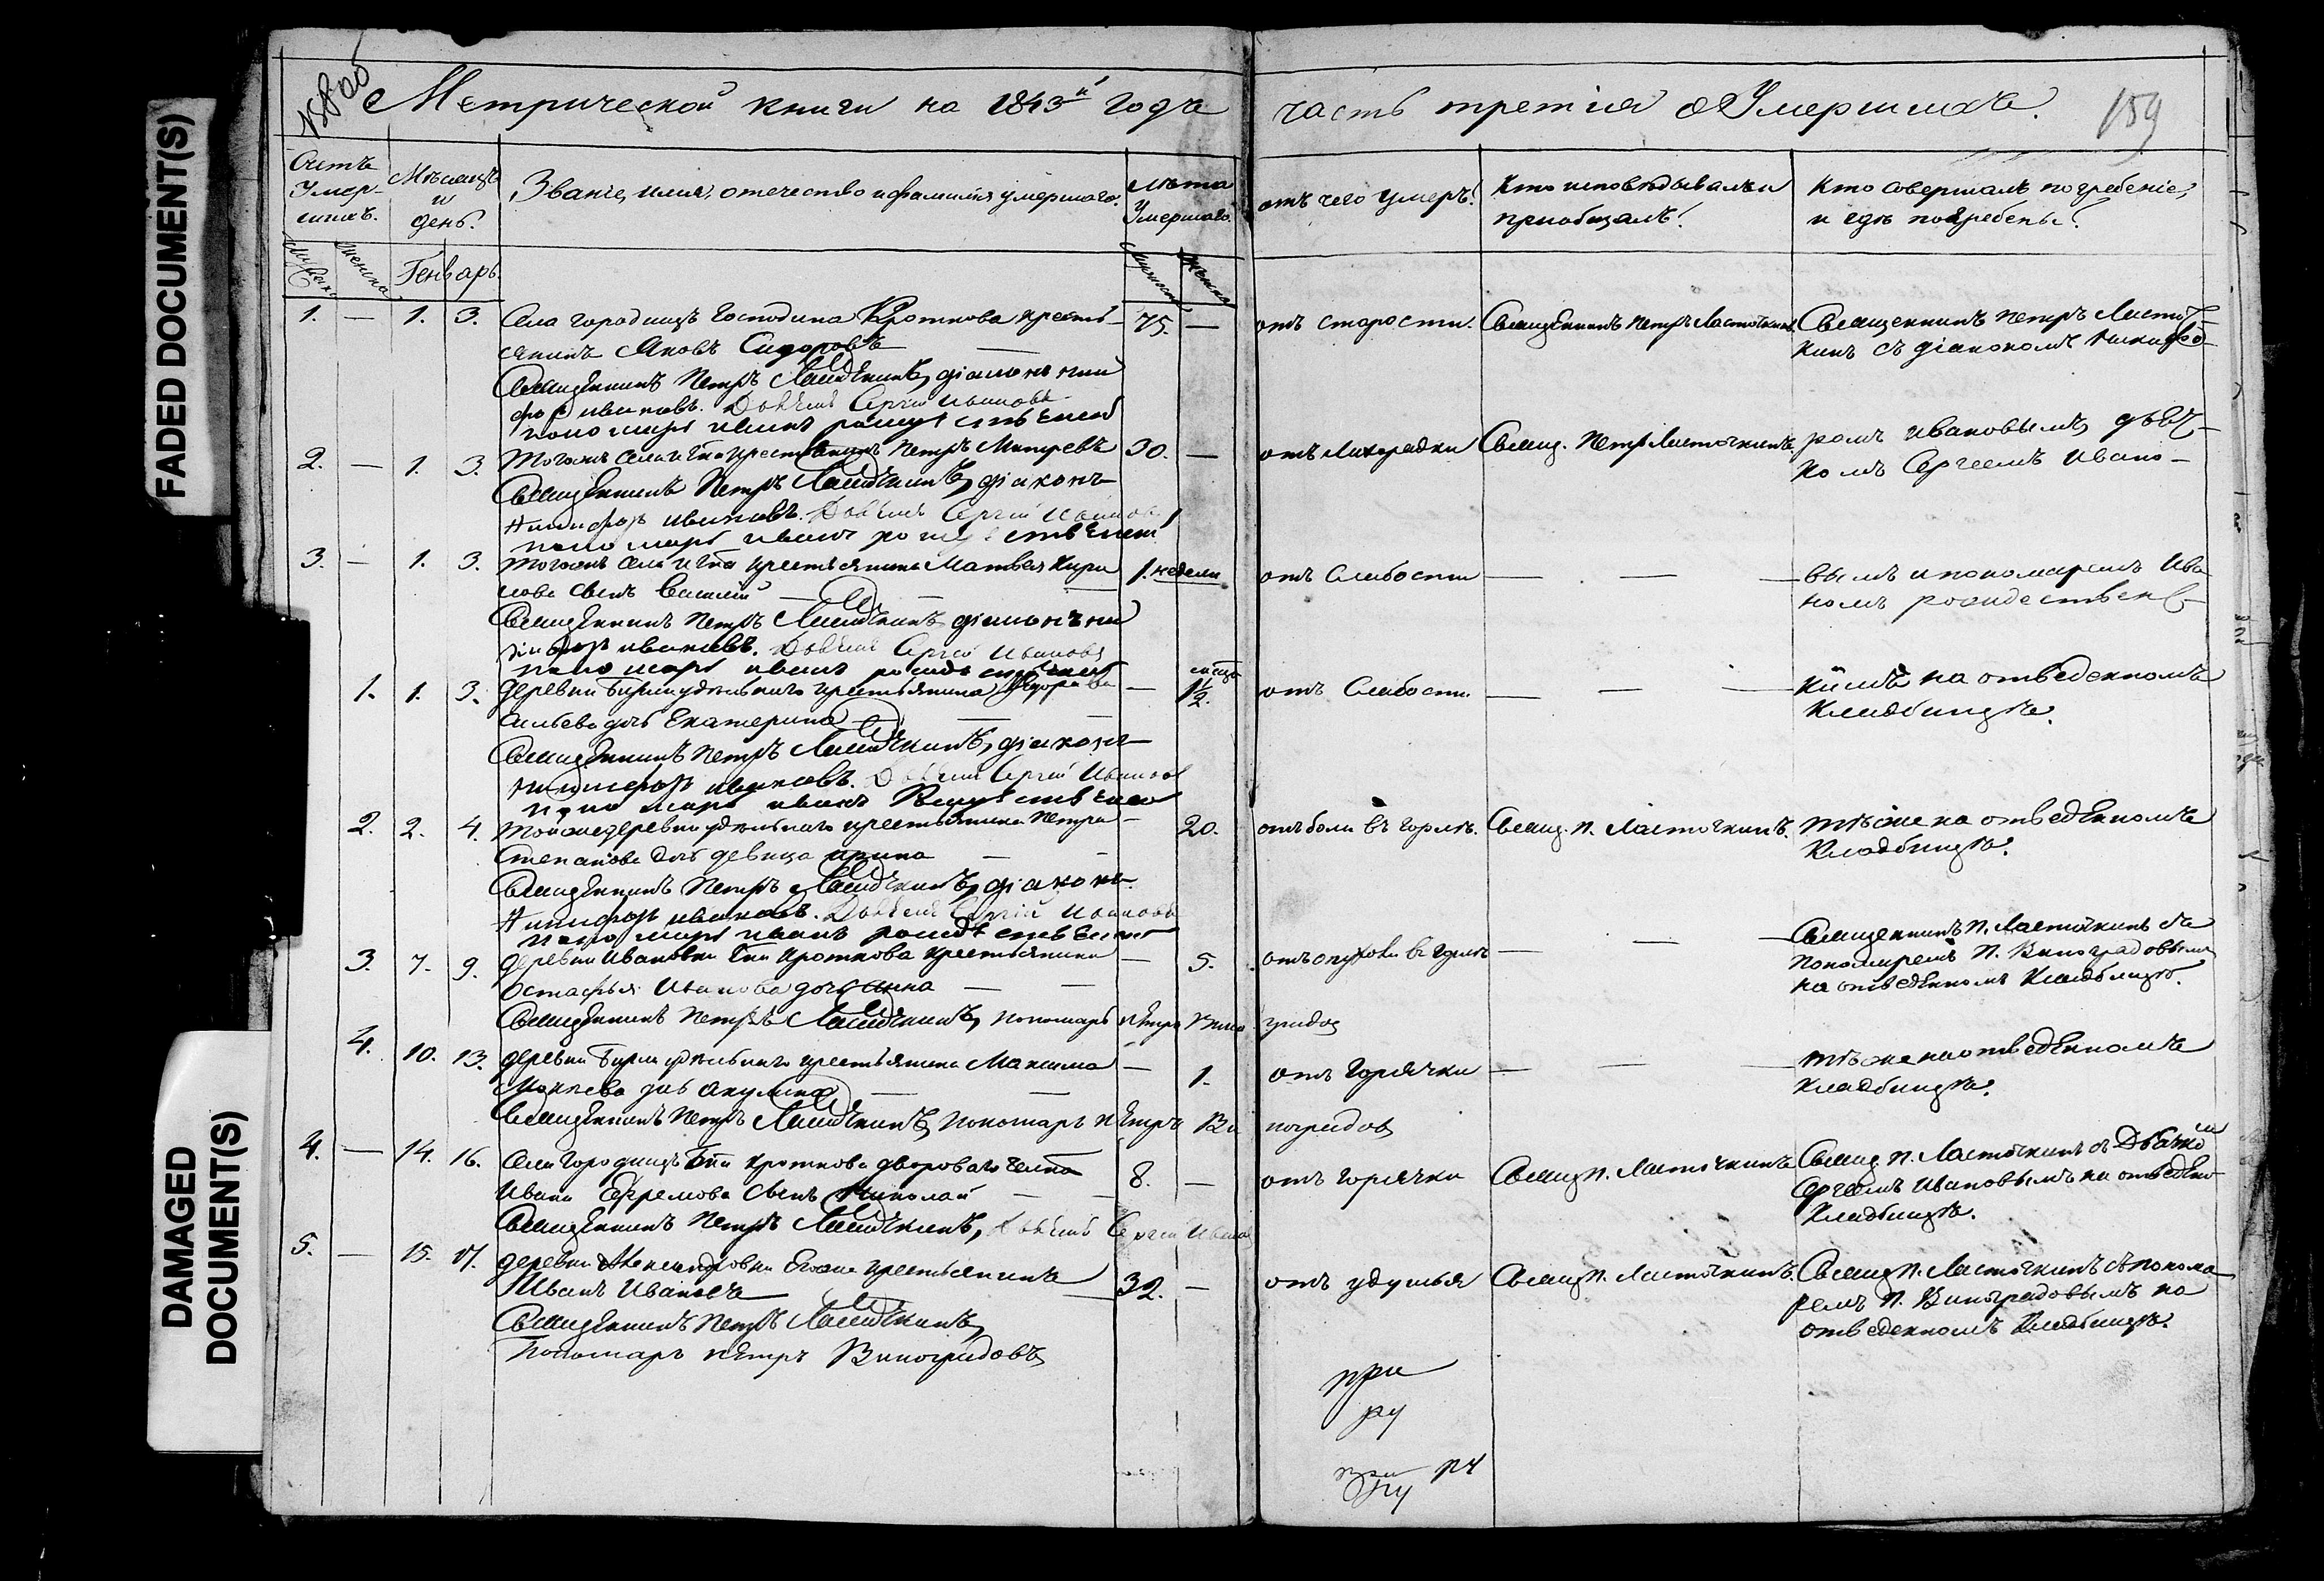 FADED DOCUMENT(S)
DAMAGED
DOCUMENT(S)
Метрической книги на 1843й годъ часть третія о Умершихъ.
159
Счетъ
Умер-
шихъ.
Мѣсяцъ
и
день.
Званіе, имя, отечество и фамилія умершаго.
Лѣта
Умершаго.
отъ чего умеръ.
Кто исповѣдывалъ и
пріобщалъ.
Кто совершалъ погребеніе,
и гдѣ погребены.
Генварь.
1. — 1. 3. Села городищъ Господина Кроткова кресть-
янинъ Яковъ Сидоровъ —
75. —
отъ старости.
Священникъ Петръ Ласточкинъ
Священникъ Петръ Ласточ-
кинъ съ діакономъ Никифо-
Священникъ Петръ Ласточкинъ, діаконъ Ники
форъ Ивановъ. Дьячекъ Сергій Ивановъ
пономарь Иванъ
2. — 1. 3. Тогожъ села и Гна крестьянинъ Петръ
30. —
отъ Лихорадки
Свящ. Петръ Ласточкинъ
ромъ Ивановымъ, дьяч-
комъ Сергеемъ Ивано-
Священникъ Петръ Ласточкинъ, діаконъ
Никифоръ Ивановъ. Дьячекъ Сергій Ивановъ
пономарь Иванъ
3. — 1. 3. Тогожъ села и Гна крестьянина Матвея Кири
лова сынъ Василій —
1. недели
отъ Слабости — — —
вымъ и пономаремъ Ива
номъ рождественс-
Священникъ Петръ Ласточкинъ діаконъ Ни
кифоръ Ивановъ. Дьячекъ Сергій Ивановъ
пономарь Иванъ
1. 1. 3. Деревни Бирли удельнаго крестьянина
дочь Екатерина —
— 1½.
отъ Слабости — — —
кимъ на отведенномъ
Кладбищѣ.
Священникъ Петръ Ласточкинъ, діаконъ
Никифоръ Ивановъ. Дьячекъ Сергій Ивановъ
пономарь Иванъ
2. 2. 4. Тойже деревни удельнаго крестьянина Петра
Степанова дочь девица Ирина —
20.
отъ боли въ горлѣ.
Свящ. П. Ласточкинъ.
Тѣже на отведенномъ
Кладбищѣ.
Священникъ Петръ Ласточкинъ, діаконъ
Никифоръ Ивановъ. Дьячекъ Сергій Ивановъ
пономарь Иванъ
3. 7. 9. Деревни Ивановки Гна Кроткова крестьянина
Остафья Иванова дочь Анна —
— 5.
отъ опухоли въ горлѣ — — —
Священникъ П. Ласточкинъ съ
Пономаремъ П. Виноградовымъ
на отведенномъ Кладбищѣ.
Священникъ Петръ Ласточкинъ, Пономарь Петръ Виноградов
4. 10. 13. Деревни Бирли удельнаго крестьянина Максима
дочь Акулина —
— 1.
отъ Горячки — — —
Тѣже на отведенномъ
Кладбищѣ.
Священникъ Петръ Ласточкинъ, Пономарь Петръ Виноградов
4. — 14. 16. Села Городищъ Гна Кроткова двороваго челка
Ивана Ефремова сынъ Николай —
8. —
отъ горячки
Свящ П. Ласточкинъ
Свящ П. Ласточкинъ съ Дьячко
Сергеемъ Ивановымъ на отведено
Кладбищѣ.
Священникъ Петръ Ласточкинъ, Дьячекъ Сергій Иванов
5. — 15. 17. Деревни Александровки Егоже крестьянинъ
Иванъ Ивановъ —
32. —
отъ удушья
Свящ П. Ласточкинъ.
Свящ П. Ласточкинъ съ понома
ремъ П. Виноградовымъ на
отведенномъ Кладбищѣ.
Священникъ Петръ Ласточкинъ,
Пономарь Петръ Виноградовъ
при
ру